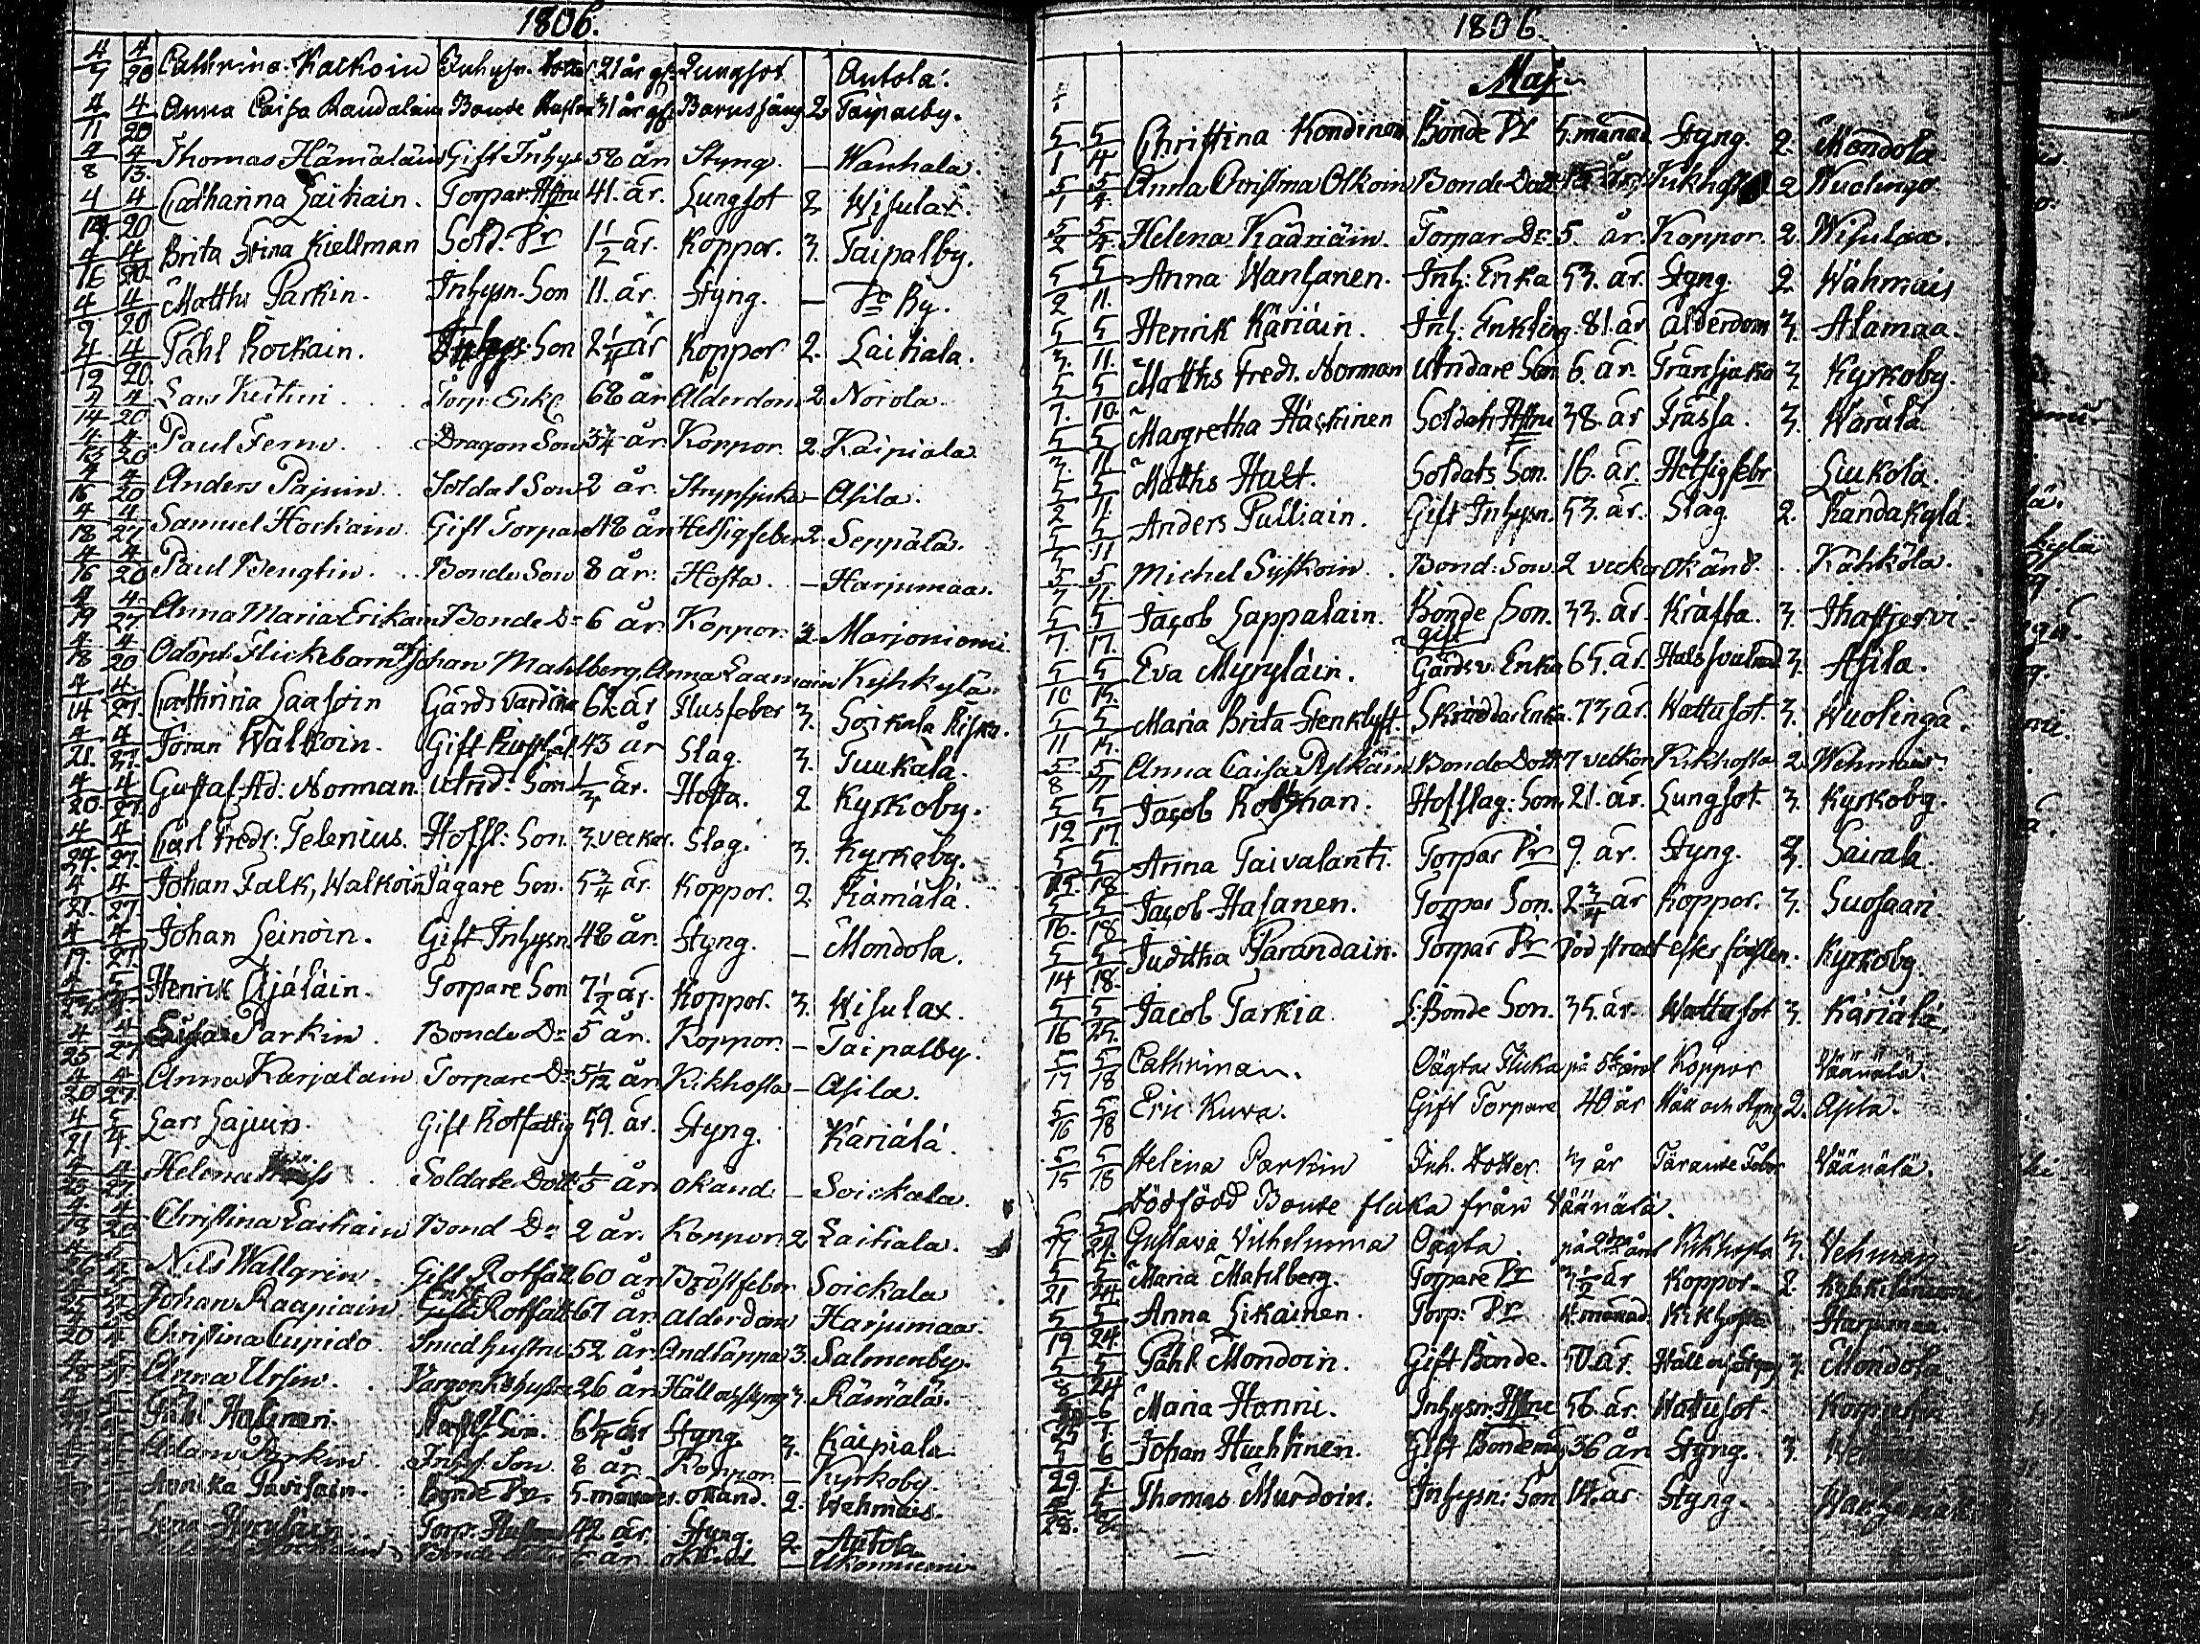 1806.
4/7 4/20 Cathrina Kackoin Inhys. Dotter 21 år gl. Lungsot Antola.
4/11 4/20 Anna Caisa Raudalain Bonde Hustru 31 år gl. Barnssäng 2 Taipalby.
4/8 4/13. Thomas Hämäläin Gift Inhys 58 år Styng. – Wanhala.
4/14 4/20 Catharina Laitiain. Torpar Hstru 41. år. Lungsot 2 Wisulax.
4/16 4/20. Brita Stina Kiellman Sold. Dr 1 1/2 år. Koppor. 3. Taipalby.
4/9 4/20 Matths Parkin. Inhysn. Son 11. år. Styng. – Do By.
4/12 4/20. Påhl Kockain. Inhys Son 2 1/4 år Koppor 2. Laitiala.
4/14 4/20 Lars Keitin . . Torp. Enkl 68 år Alderdom 2 Norola.
4/20 Paul Fernv . . Dragon Son 3/4 år. Koppor. 2. Kaipiala.
4/16 4/20 Anders Pajuin. . Soldat Son 2 år. Strypsjuka – Asila.
4/18 4/27 Samuel Hockain Gift Torpare 48 år Hetsigfeber 2. Seppälä.
4/16 4/20 Paul Bengtin. . Bonde Son 8 år. Hosta. – Harjumaa.
4/19 4/27 Anna Maria Erikain Bonde Dr 6 år. Koppor. 2. Marjoniemi.
4/18 4/20 Odöpt Flickebarn af Johan Mahlberg, Anna Laamain Kyhkylä.
4/14 4/27. Cathrina Laasoin Gårds värdina år Flusfeber 3. Soikala
4/21. 4/27. Jöran Walkoin. Gift 43 år Slag. 3. Tuukala.
4/20. 4/27. Gustaf Ad: Norman. Utrid: Son år. Hosta. 2 Kyrkoby.
4/24. 4/27. Carl Fredr: Telenius. Hoffl: Son. 3. veckor. Slag. 3. Kyrkoby.
4/21. 4/27. Johan Falk, Walkoin Jägare Son. 5 3/4 år. Koppor. 2. Rämälä.
4/17. 4/27. Johan Leinoin. Gift Inhysn 48 år. Styng. – Mondola.
Henrik Äjäläin. Torpare Son 7 1/2 år. Koppor. 3. Wisulax.
4/25 4/27 Parkin . Bonde Dr 5 år. Koppor. – Taipalby.
4/20 4/27. Anna Karjalain Torpare Dr 5/12 år. Kikhosta – Asila.
4/21 5/4. Lars Lajuin. Gift Rotfattig 59. år. Styng. Käriälä.
Helena Soldats Dott 1/5 år okänd – Soickala.
Christina Laitiain Bond Dr 2 år. Koppor. 2 Laitiala.
Nils Wallgrin. Gift Rotfatt 60 år Bröstfeber Soickala
Johan Raapiain Enkl. Rotfatt 67 år alderdom Harjumaa.
Christina Cupido. Smed hustru 52 år Andtäppa 3. Salmenby.
Anna Ursin. . 26 år Håll och styng 3. Rämälä.
Påhl Halinen. Son. 6 1/4 år Styng. 3. Kaipiala
Adam Parkin. Inhys. Son 8 år Koppor – Kyrkoby.
Annika Pavilain. Bonde Dr. 5. månader. okänd. 2. Wehmais.
Lena Torp. Hustru 42 år. Styng. 2. Antola
Bonde år okänd – Ukonniemi

1806
Maj
5/1 5/14 Christina Kondinen Bonde Dr 5. månad Styng. 2. Mondola.
5/1 5/4. Anna Christina Olkoin Bonde Dott år. Kikhosta 2 Wuolingo
5/2 5/4. Helena Kääriäin. Torpar Dr. 5. år. Koppor. 2. Wisulax.
5/2 5/11. Anna Wanhanen. Inh: Enka 53. år. Styng. 2. Wähmais
5/3. 5/11. Henrik Käriäin. Inh: Enkling. 81. år ålderdom 3. Alamaa.
5/7. 5/10. Matths Fredr. Norman Utridare Son 6. år. Transjuka 3. Kyrkoby.
5/3. 5/11. Margretha Häckinen Soldats Hstru 38. år Frässa. 3. Wärälä.
5/2 5/11. Matths Hult. Soldats Son. 16. år. Hetsigfebr Liukola.
5/5 5/11 Anders Pulliain. Gift Inhysn. 53. år. Slag. 2. Randakylä.
5/7 5/11. Michel Sysikoin. . Bond: Son. 2 veckor okänd. . . Kähkölä.
5/7. 5/17. Jacob Lappalain. Bonde Son. gift 33. år. Kräfta. 3. Ihastjervi.
5/10 Eva Myryläin. Gårdsv. Enka 65. år. Halssvulnad 3. Asila.
5/11 Maria Brita Stenklyft. Skräddar Enka. 73. år. Wattusot. 3. Wuolinga.
5/8 5/11 Anna Caisa Pylkäin Bonde Dott 7 veckor Kikhosta 2. Wehmais.
5/12 5/17. Jacob Hofslag: Son 21. år. Lungsot. 3. Kyrkoby.
5/15. 5/18 Anna Taivalanti. Torpar Dr 9. år. Styng. 2. Sairala.
5/16. 5/18 Jacob Hasanen. Torpar Son. 2 3/4 år Koppor. 3. Suosaari.
5/14 5/18. Juditha Parandain. Torpar Dr Död strax efter födslen. Kyrkoby.
5/16 5/25. Jacob Tarkia. S: Bonde Son. 35. år. Wattusot 3. Käriälä.
5/17 5/18 Cathrina. Oägta Flicka på året Koppor Väänälä.
5/16 5/18 Eric Kuva. Gift Torpare 40 år Håll och styng 2. Asila.
5/15 5/18 Helena Parkin Inh. Dotter. 3 år Tärande Feber Väänälä.
Dödfödd Bonde flicka från Väänälä.
5/17 5/24. Gustava Vilhelmina Oägta. på 2dra året Kikhosta 3. Vehmais
5/21 5/24 Maria Mahlberg. Torpare Dr 3 1/2 år Koppor. 2.
5/19 5/24. Anna Likainen. Torp: Dr 4. månad. Kikhosta Harjumaa.
5/8 5/24 Påhl Mondoin. Gift Bonde. 50. år. Håll och Styng 3. Mondola
Maria Hanni. Inhysn. Hstru 56. år. Wattusot.
Johan Huchtinen. Gift Bondemåg 36 år Styng. 3.
Thomas Murdoin. Inhysn: Son 14. år. Styng.